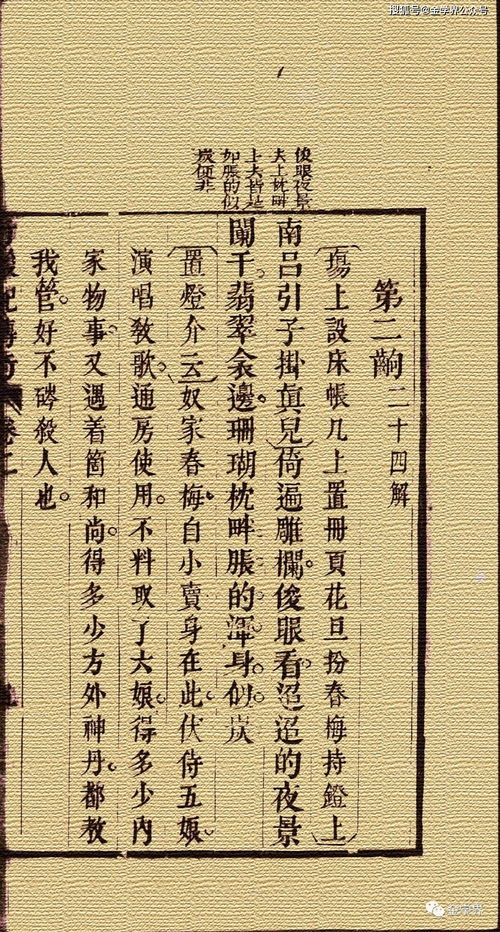 搜狐号@金学界公众号
俊眼夜景
夫上枕畔
上夫皆是
如脹的似
炭便非
第二齣二十四解
〔場上設床帳几上置冊頁花旦扮春梅持鐙上〕
南呂引子掛真兒〕倚遍雕欄。俊眼看。迢迢的夜景
闌干。翡翠衾邊。珊瑚枕畔。脹的渾身似炭
〔置燈介云〕奴家春梅。自小賣身在此。伏侍五娘。
演唱教歌。通房使用。不料取了大娘。得多少內
家物事。又遇着箇和尚。得多少方外神丹。都教
我管。好不磣殺人也。
卷二
金学界